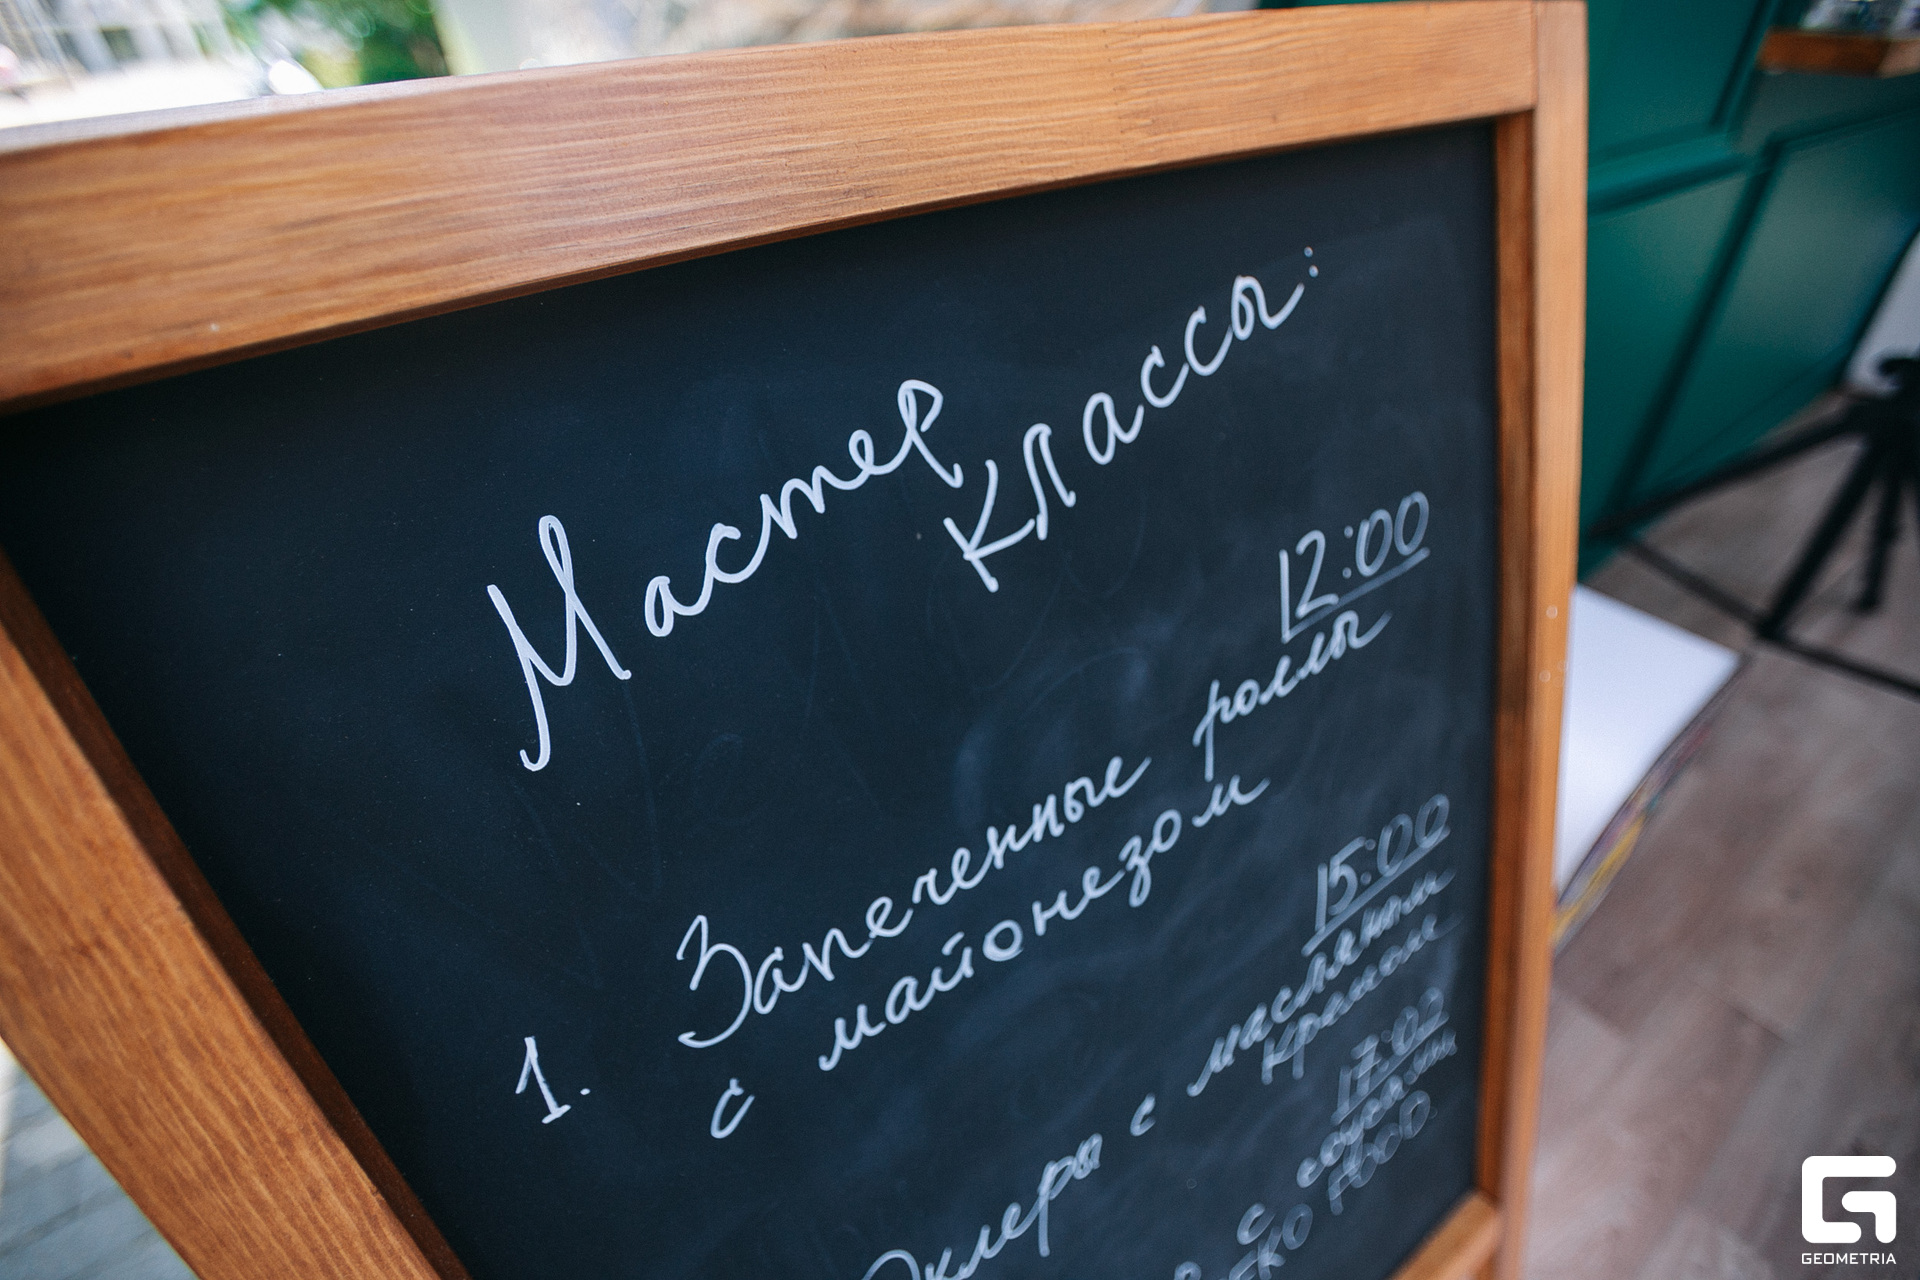 Мастер
классы:
12:00
1. Запеченные роллы
с майонезом
15:00
Эклеры с масляным
кремом
17:00
с соусами
ЕКО FOOD
GEOMETRIA